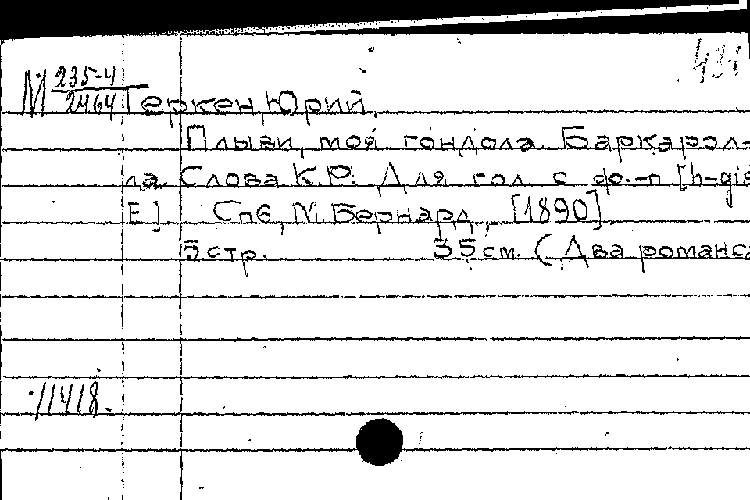 М 235-4
2464 Геркен, Юрий.
Плыви, моя гондола. Баркарол-
ла. Слова К.Р. Для гол. с фо.-п [h-gis
E]. Спб, М. Бернард, [1890].
5 стр. 35 см. (Два романса
11418.